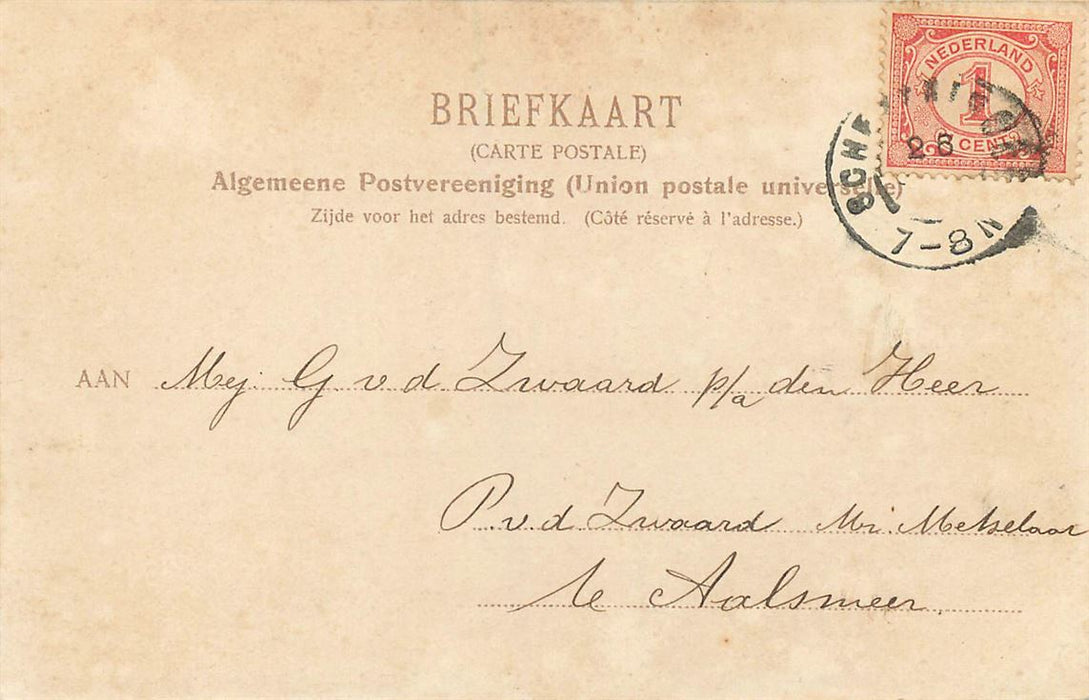 NEDERLAND
1
CENT
BRIEFKAART
(CARTE POSTALE)
Algemeene Postvereeniging (Union postale universelle)
Zijde voor het adres bestemd. (Côté réservé à l'adresse.)
26
7-8 N
AAN Mej. G v d Zwaard p/a den Heer
P.v.d Zwaard Mr. Metselaar
te Aalsmeer.